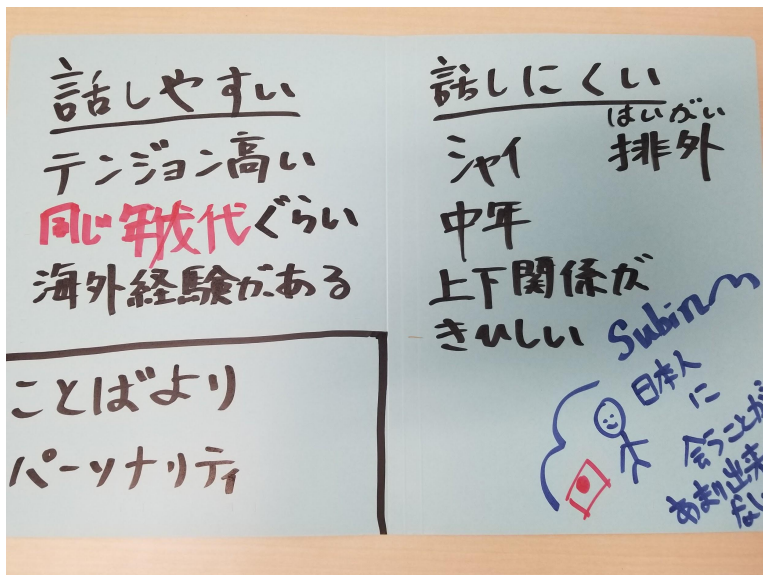 話しやすい
テンション高い
同じ年代ぐらい
海外経験がある
ことばより
パーソナリティ
話しにくい
はいがい
シャイ 排外
中年
上下関係が
きひしい
Subin
日本人
に
会うことが
あまり出来
ない